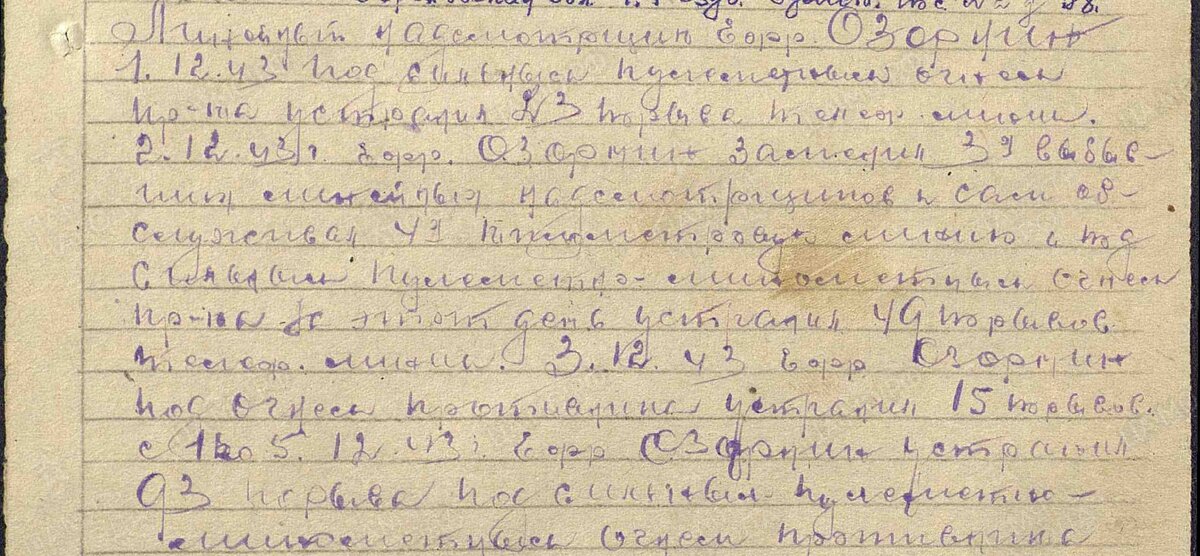 Линейный надсмотрщик Ефр. Озорнин
1.12.43 под сильным пулеметным огнем
пр-ка устранил 23 порыва телеф. линии.
2.12.43 г. Ефр. Озорнин заменил 3х выбыв-
ших линейных надсмотрщиков и сам об-
служивал 4х километровую линию и под
сильным пулеметно-минометным огнем
пр-ка в этот день устранил 49 порывов
телеф. линии. 3.12.43 Ефр Озорнин
под огнем противника устранил 15 порывов.
с 1 по 5.12.43 г. Ефр Озорнин устранил
93 порыва под сильным пулеметно-
минометным огнем противника